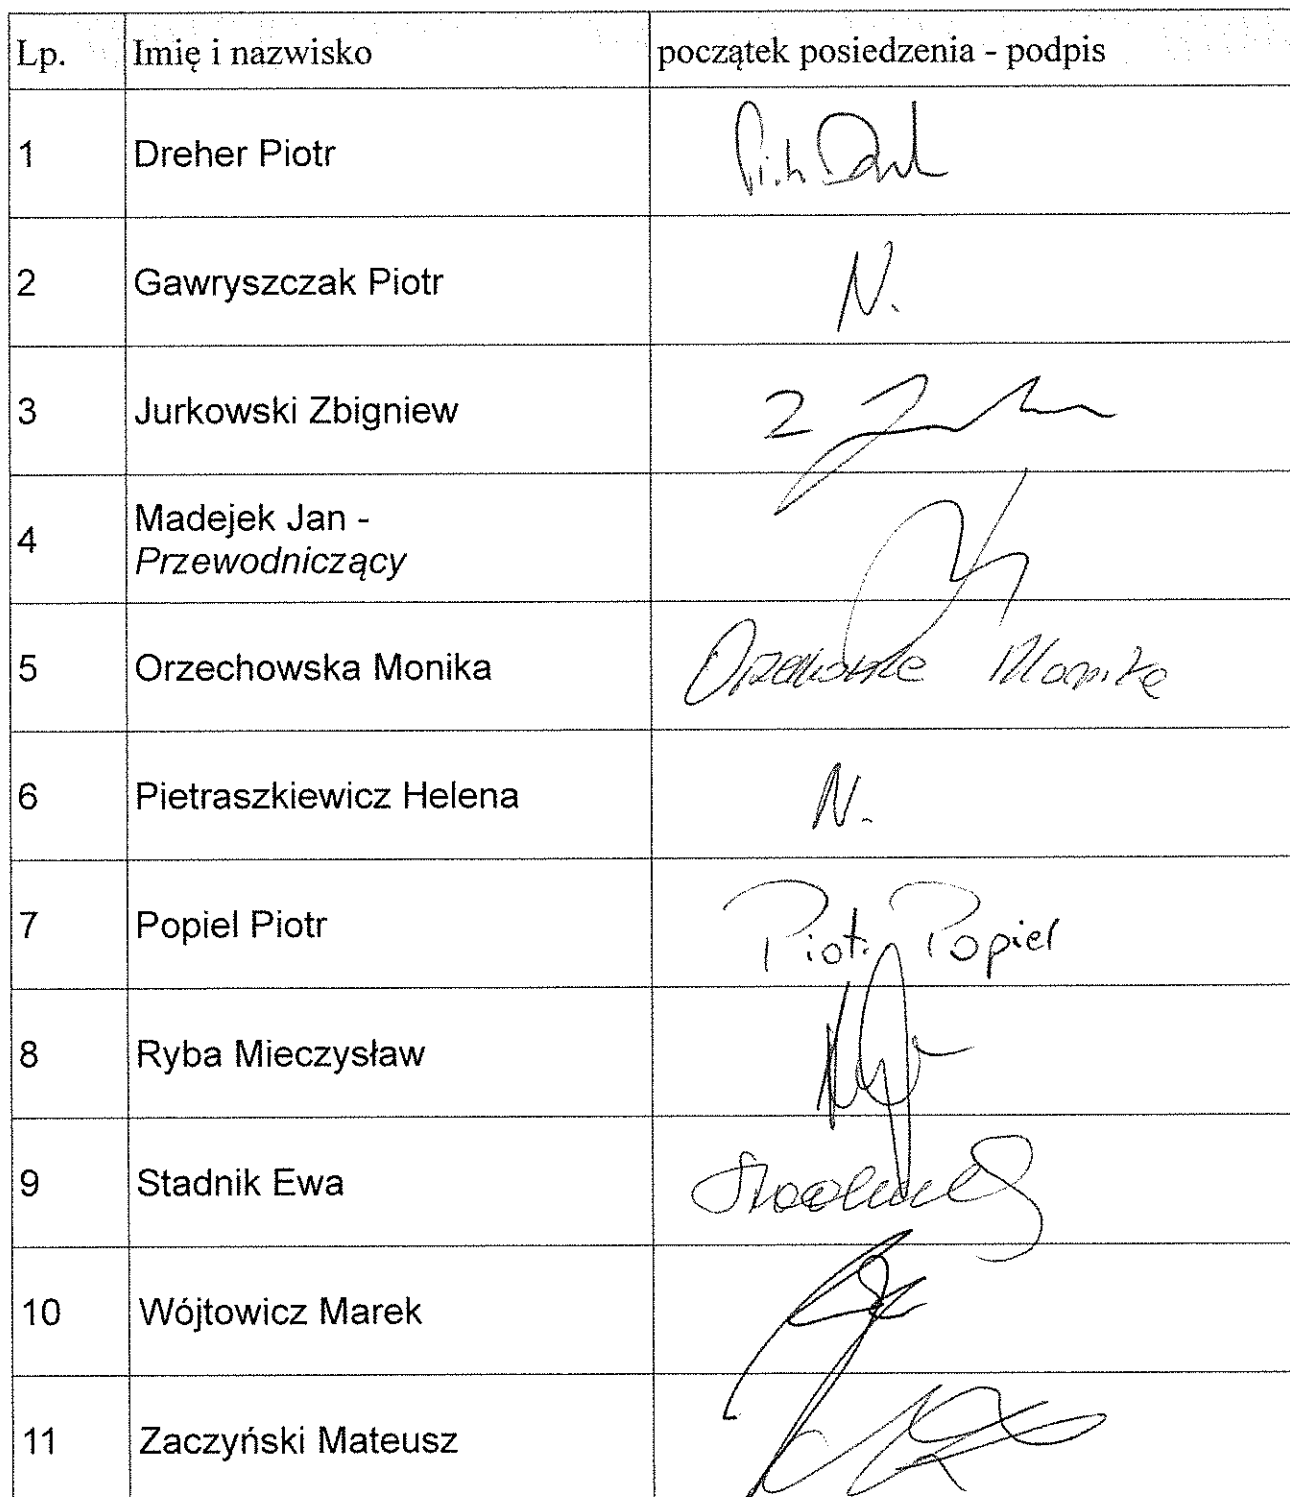 Lp. Imię i nazwisko początek posiedzenia - podpis
1 Dreher Piotr
2 Gawryszczak Piotr N.
3 Jurkowski Zbigniew
4 Madejek Jan -
Przewodniczący
5 Orzechowska Monika Orzechowska Monika
6 Pietraszkiewicz Helena N.
7 Popiel Piotr Piotr Popiel
8 Ryba Mieczysław
9 Stadnik Ewa
10 Wójtowicz Marek
11 Zaczyński Mateusz